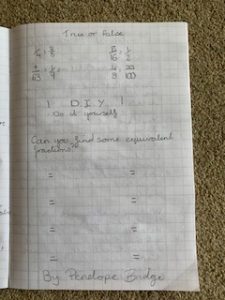 True or False
8/16 , 1/2
7/63 , 1/9
! D.I.Y !
Do it yourself
Can you find some equivalent
fractions?
= =
= =
= =
= =
By Penelope Badge